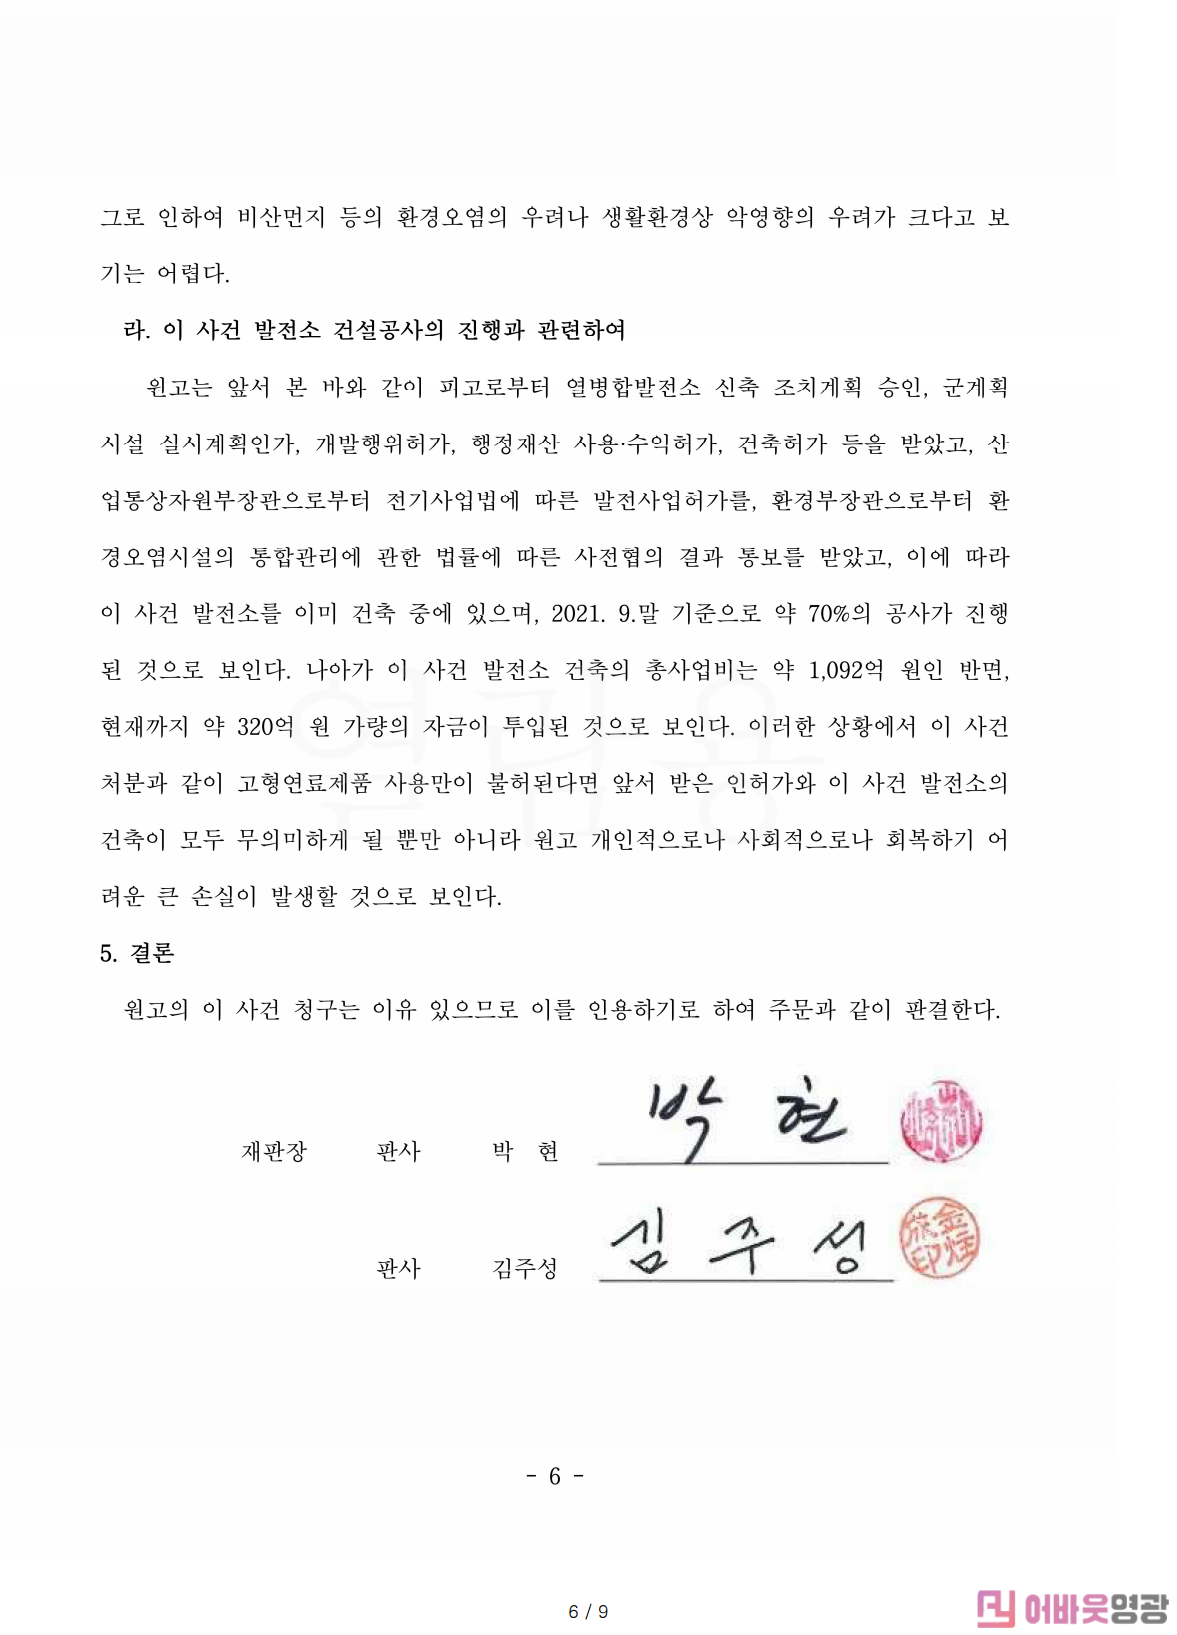 그로 인하여 비산먼지 등의 환경오염의 우려나 생활환경상 악영향의 우려가 크다고 보
기는 어렵다.
라. 이 사건 발전소 건설공사의 진행과 관련하여
원고는 앞서 본 바와 같이 피고로부터 열병합발전소 신축 조치계획 승인, 군계획
시설 실시계획인가, 개발행위허가, 행정재산 사용·수익허가, 건축허가 등을 받았고, 산
업통상자원부장관으로부터 전기사업법에 따른 발전사업허가를, 환경부장관으로부터 환
경오염시설의 통합관리에 관한 법률에 따른 사전협의 결과 통보를 받았고, 이에 따라
이 사건 발전소를 이미 건축 중에 있으며, 2021. 9.말 기준으로 약 70%의 공사가 진행
된 것으로 보인다. 나아가 이 사건 발전소 건축의 총사업비는 약 1,092억 원인 반면,
현재까지 약 320억 원 가량의 자금이 투입된 것으로 보인다. 이러한 상황에서 이 사건
처분과 같이 고형연료제품 사용만이 불허된다면 앞서 받은 인허가와 이 사건 발전소의
건축이 모두 무의미하게 될 뿐만 아니라 원고 개인적으로나 사회적으로나 회복하기 어
려운 큰 손실이 발생할 것으로 보인다.
열람용
5. 결론
원고의 이 사건 청구는 이유 있으므로 이를 인용하기로 하여 주문과 같이 판결한다.
재판장 판사 박 현 박 현
판사 김주성 김 주 성
- 6 -
6 / 9
어바웃영광